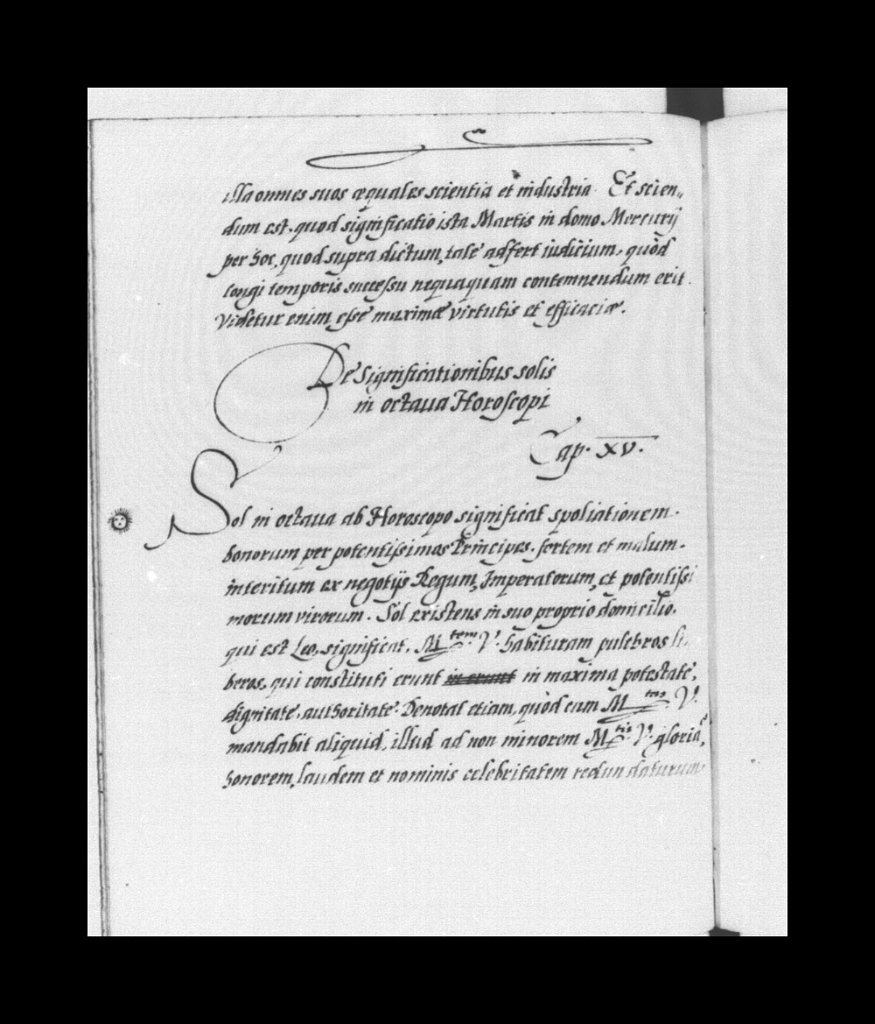 illa omnes suos æquales scientia et industria. Et scien„
dum est, quod significatio ista Martis in domo Mercurij
per hoc, quod supra dictum, tale adfert iudicium, quòd
longi temporis successu nequaquam contemnendum erit.
Videtur enim esse maximæ virtutis et efficaciæ.
De Significationibus solis
in octaua Horoscopi
Cap. XV.
Sol in octaua ab Horoscopo significat spoliationem
bonorum per potentissimos Principes, fortem et malum
interitum ex negotijs Regum, Imperatorum, et potentissi
morum virorum. Sol existens in suo proprio domicilio,
qui est Leo, significat, M.tem V. habituram pulchros li„
beros, qui constituti erunt in maxima potestate,
dignitate, authoritate. Denotat etiam, quòd cum M.tas V.
mandabit aliquid, illud ad non minorem M.tis V. gloriā,
honorem, laudem et nominis celebritatem redundaturum